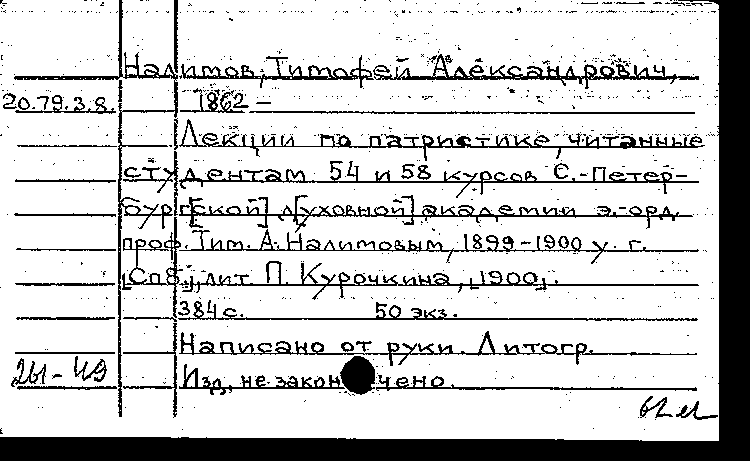 Налимов, Тимофей Александрович,
20.79.3.8. 1862 –
Лекции по патристике, читанные
студентам 54 и 58 курсов С.-Петер-
бург[ской] д[уховной] академии э.-орд.
проф. Тим. А. Налимовым, 1899-1900 у. г.
[Спб.], лит. П. Курочкина, [1900].
384 с. 50 экз.
Написано от руки. Литогр.
261-49 Изд. не закончено.